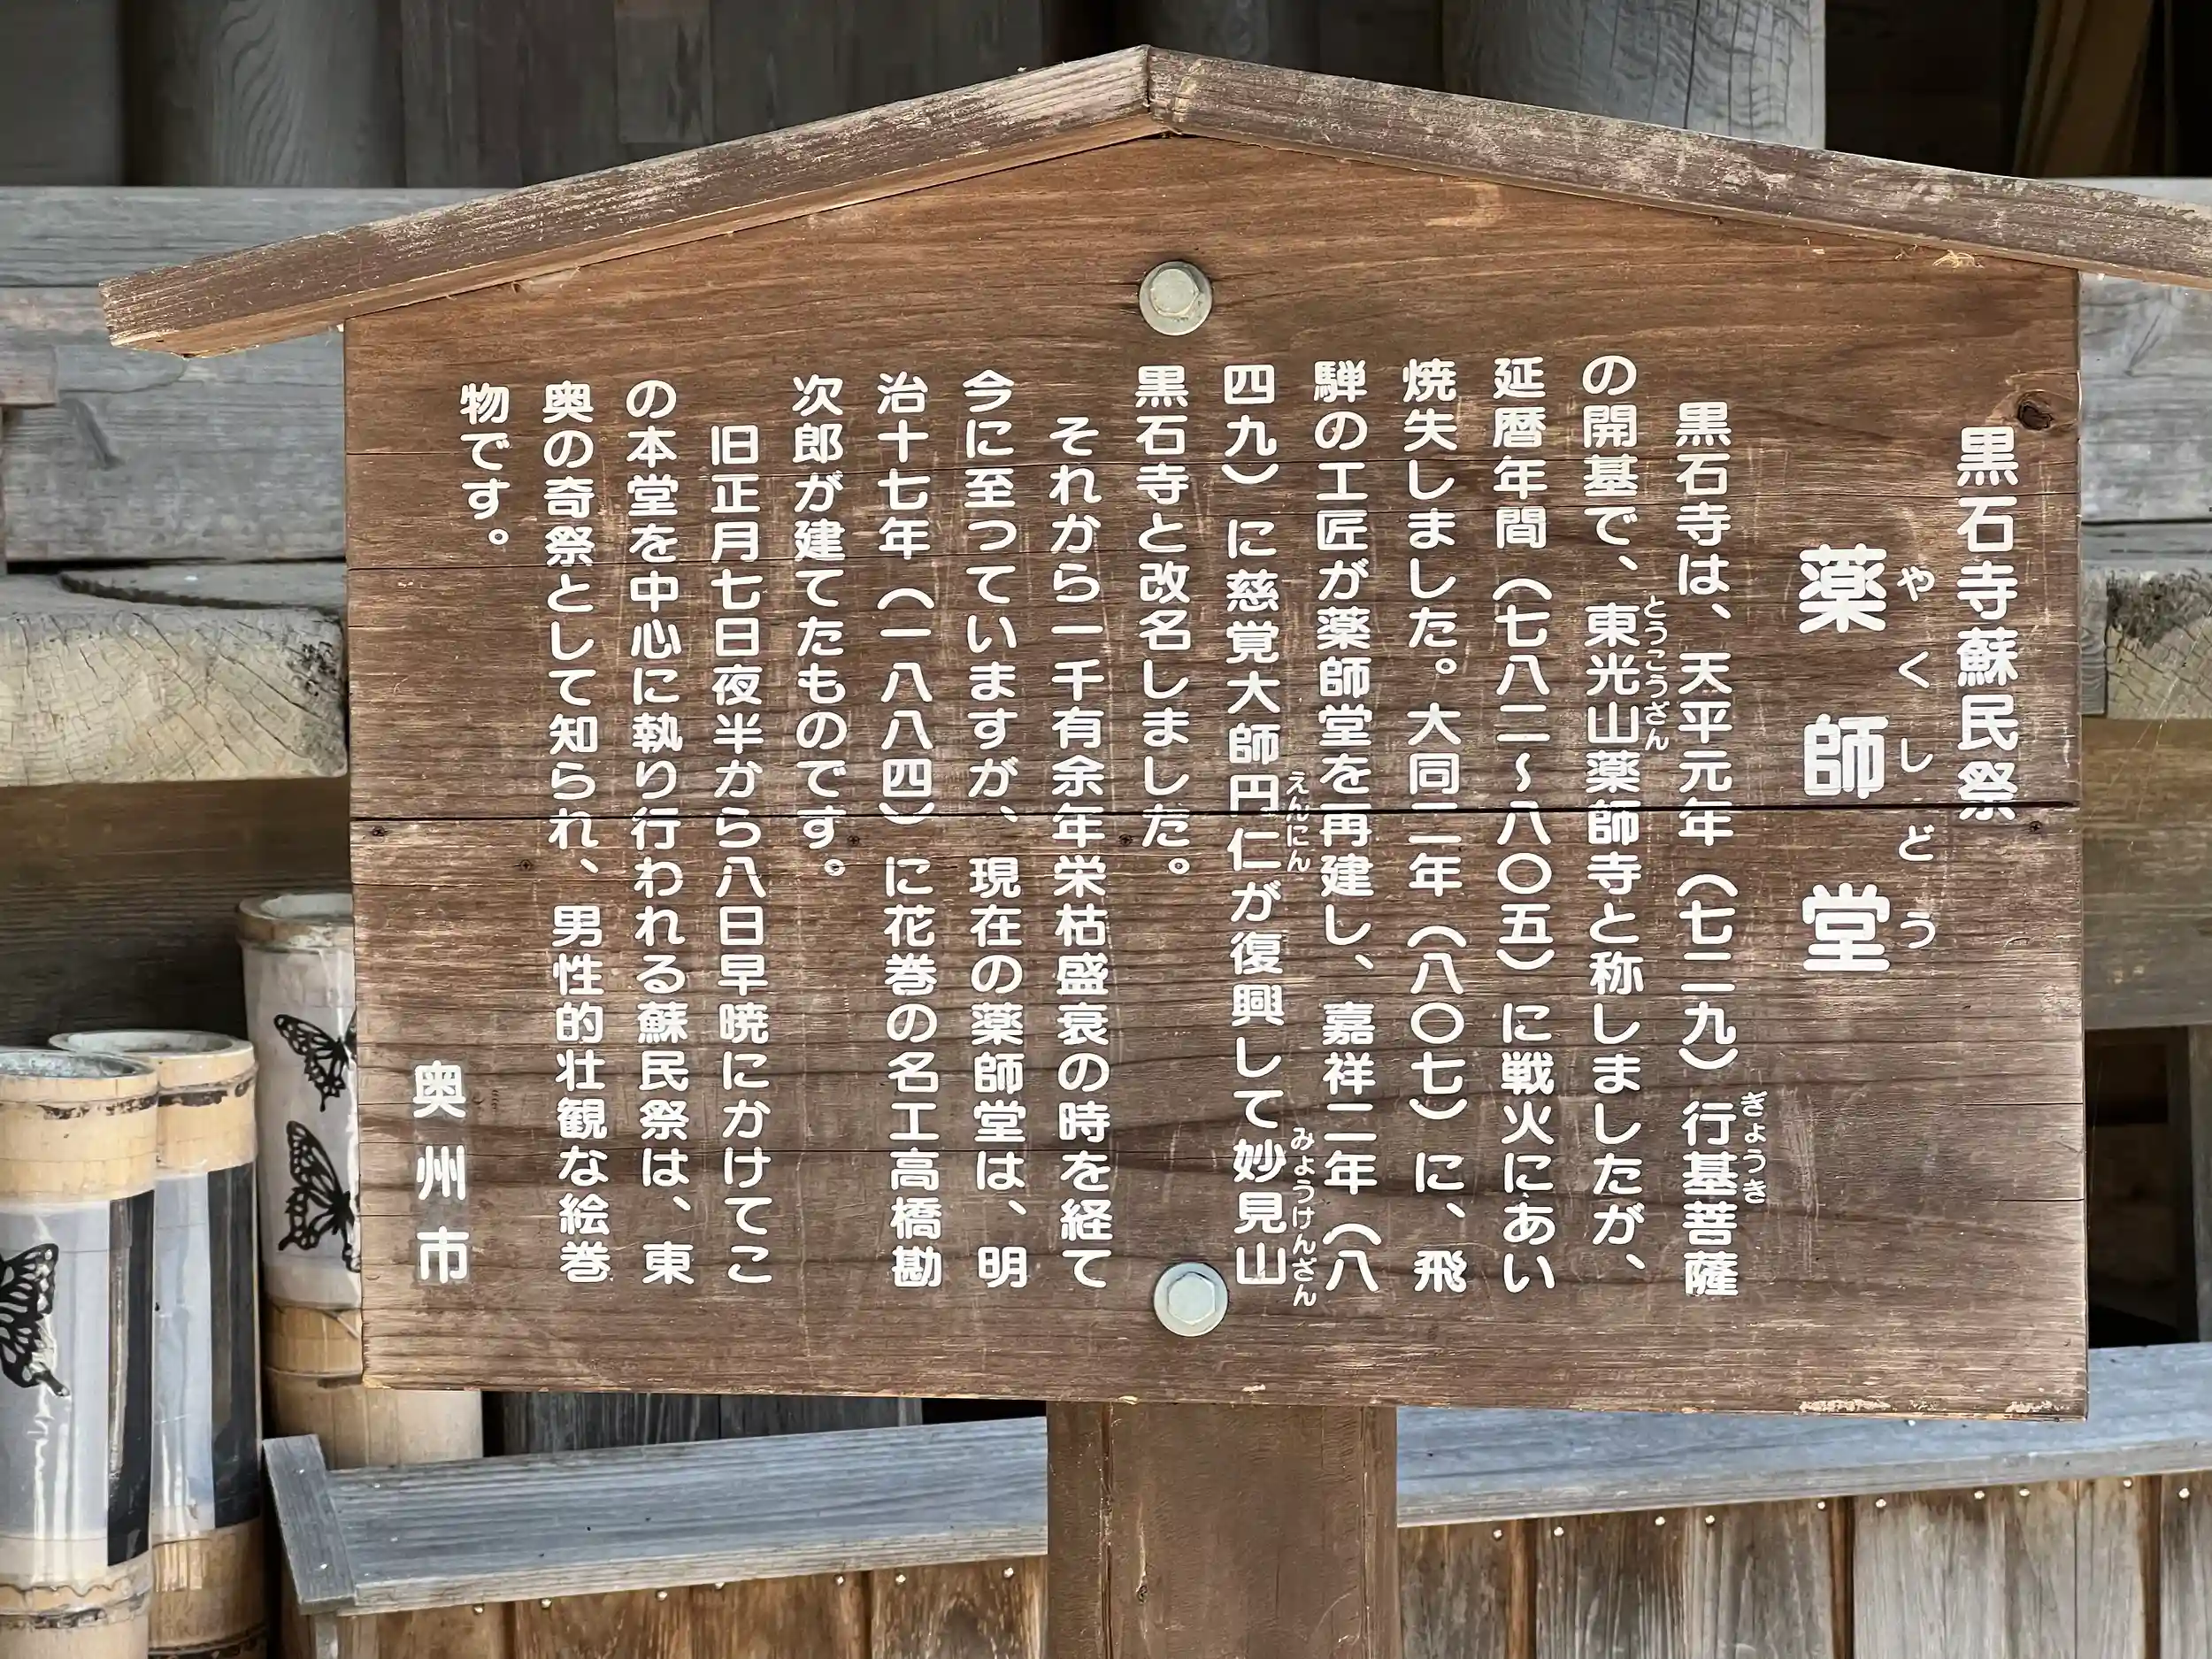 黒石寺蘇民祭
やくしどう
薬師堂
黒石寺は、天平元年（七二九）行基菩薩
ぎょうき
の開基で、東光山薬師寺と称しましたが、
とうこうざん
延暦年間（七八二～八〇五）に戦火にあい
焼失しました。大同二年（八〇七）に、飛
騨の工匠が薬師堂を再建し、嘉祥二年（八
四九）に慈覚大師円仁が復興して妙見山
えんにん
みょうけんざん
黒石寺と改名しました。
それから一千有余年栄枯盛衰の時を経て
今に至つていますが、現在の薬師堂は、明
治十七年（一八八四）に花巻の名工高橋勘
次郎が建てたものです。
旧正月七日夜半から八日早暁にかけてこ
の本堂を中心に執り行われる蘇民祭は、東
奥の奇祭として知られ、男性的壮観な絵巻
物です。
奥州市